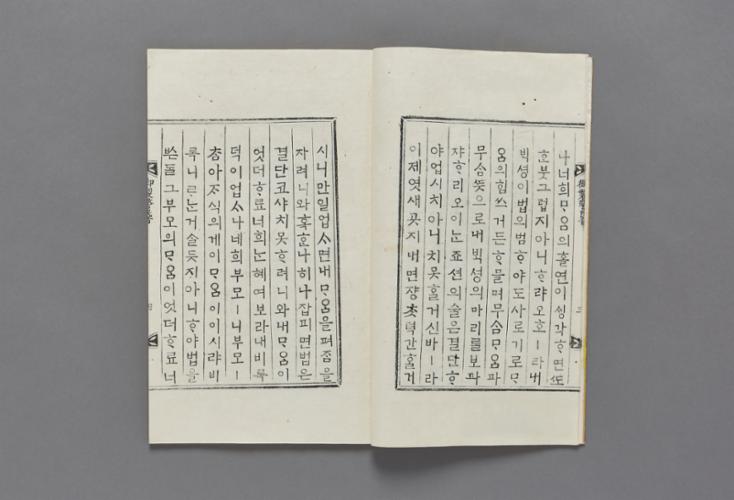 나너희ᄆᆞᄋᆞᆷ의홀연이ᄉᆡᆼ각ᄒᆞ면ᄯᅩ
ᄒᆞᆫ붓그럽지아니ᄒᆞ랴오호ㅣ라내
ᄇᆡᆨ셩이법의범ᄒᆞ야도사로기로ᄆᆞ
ᄋᆞᆷ의힘쓰거든ᄒᆞ믈며무ᄉᆞᆷᄆᆞᄋᆞᆷ과
무ᄉᆞᆷᄯᅳᆺ으로내ᄇᆡᆨ셩의마리를보과
쟈ᄒᆞ리오이ᄂᆞᆫ죠션의술은결단ᄒᆞ
야업시치아니치못ᄒᆞᆯ거신바ㅣ라
이제엿새ᄭᆞ지내면쟝ᄎᆞᆺ녁간ᄒᆞᆯ거
시니만일업ᄉᆞ면내ᄆᆞᄋᆞᆷ을펴짐을
쟈려니와혹ᄒᆞ나히나잡피면범은
결단코샤치못ᄒᆞ려니와내ᄆᆞᄋᆞᆷ이
엇더ᄒᆞ료너희ᄂᆞᆫ혜여보라내비록
덕이업ᄉᆞ나네희부모ㅣ니부모ㅣ
ᄎᆞᆷ아ᄌᆞ식의게이ᄆᆞᄋᆞᆷ이이시랴비
록니ᄅᆞᄂᆞᆫ거슬듯지아니ᄒᆞ야법을
ᄡᅳᆫᄃᆞᆯ그부모의ᄆᆞᄋᆞᆷ이엇더ᄒᆞ료너